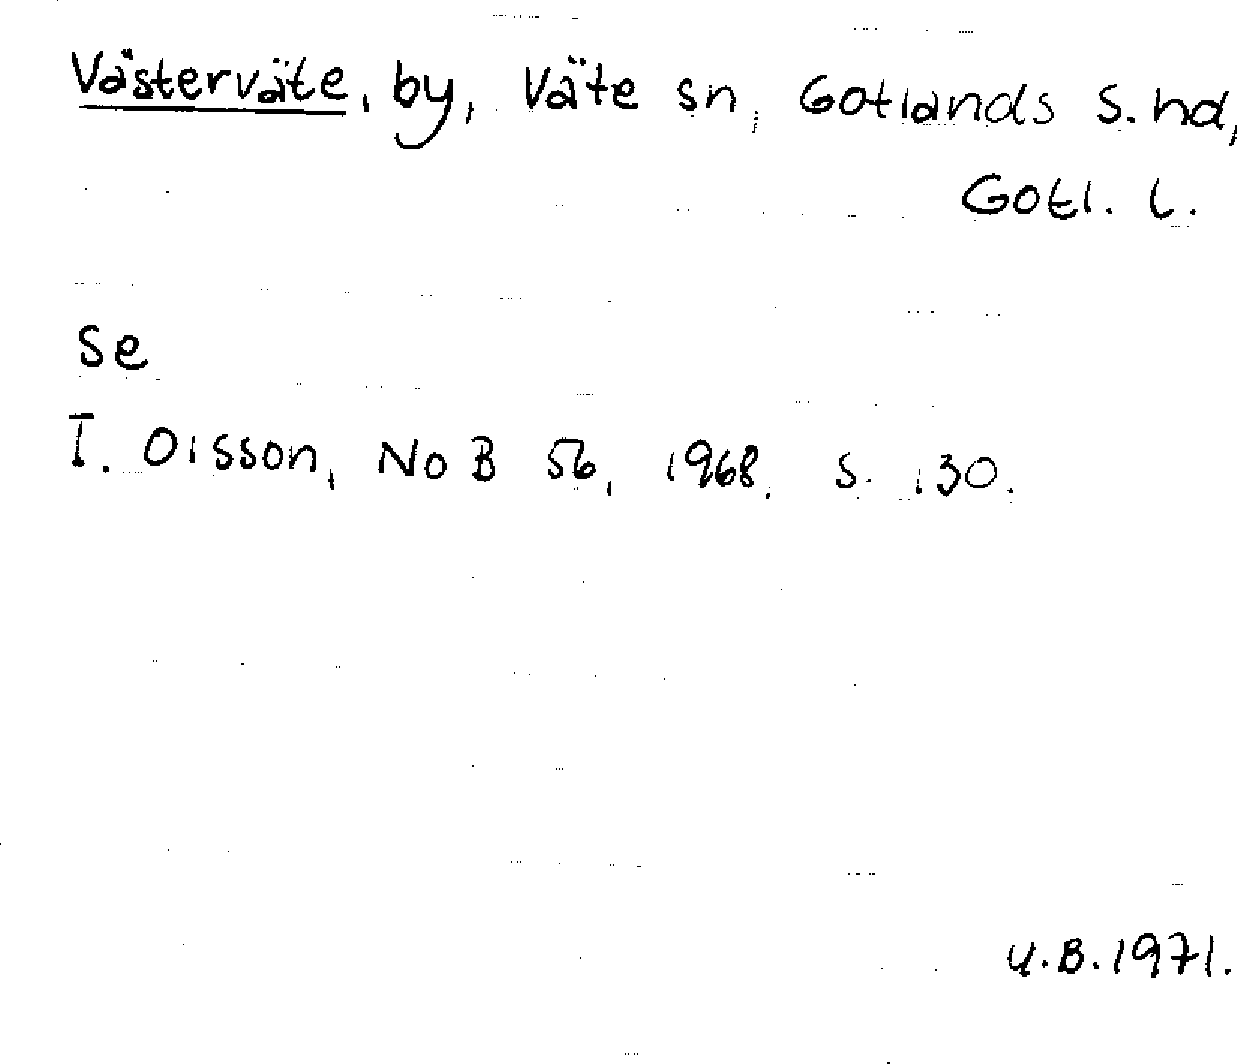 Västerväte, by, Väte sn, Gotlands S. hd,
Gotl. l.
se
I. Olsson, NoB 56, 1968, s. 130.
U.B. 1971.